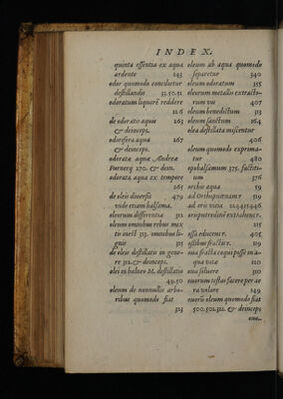 INDEX.
quinta essentia ex aqua
ardente 243
odor quomodo concilietur
destillando 32.50.51
odoratum liquorē reddere
116
de odorato aquæ 263
& deinceps.
odorifera aqua 267
& deinceps.
odorata aqua Andreæ
Furnerij 270. & dein.
odorata aqua ex tempore
265
de oleis diuersis 479
vide etiam balsama.
oleorum differentia 312
oleum omnibus rebus mix
to inest 313. omnibus li-
gnis 313
de oleis destillatis in gene-
re 312. & deinceps.
olei in balneo M. destillatio
49.50
oleum de nonnullis arbo-
ribus quomodo fiat
313
oleum ab aqua quomodo
separetur 340
oleum odoratum 355
oleorum metallis extracto-
rum vis 407
oleum benedictum 323
oleum sanctum 164
olea destillata miscentur
406
oleum quomodo exprima-
tur 480
opobalsamum 375. factiti-
um 376
orchis aqua 59
ad Orthopnœam 119
ad oris vitia
oris putredini extrahenter.
115
ossa educentur. 405
ossibus fractis. 119
oua fracta coqui posse in a-
qua vitæ 120
oua soluere 310
ouorum testas facere per ae
ra volare 149
ouorū oleum quomodo fiat
500.501.511. & deinceps
oua..